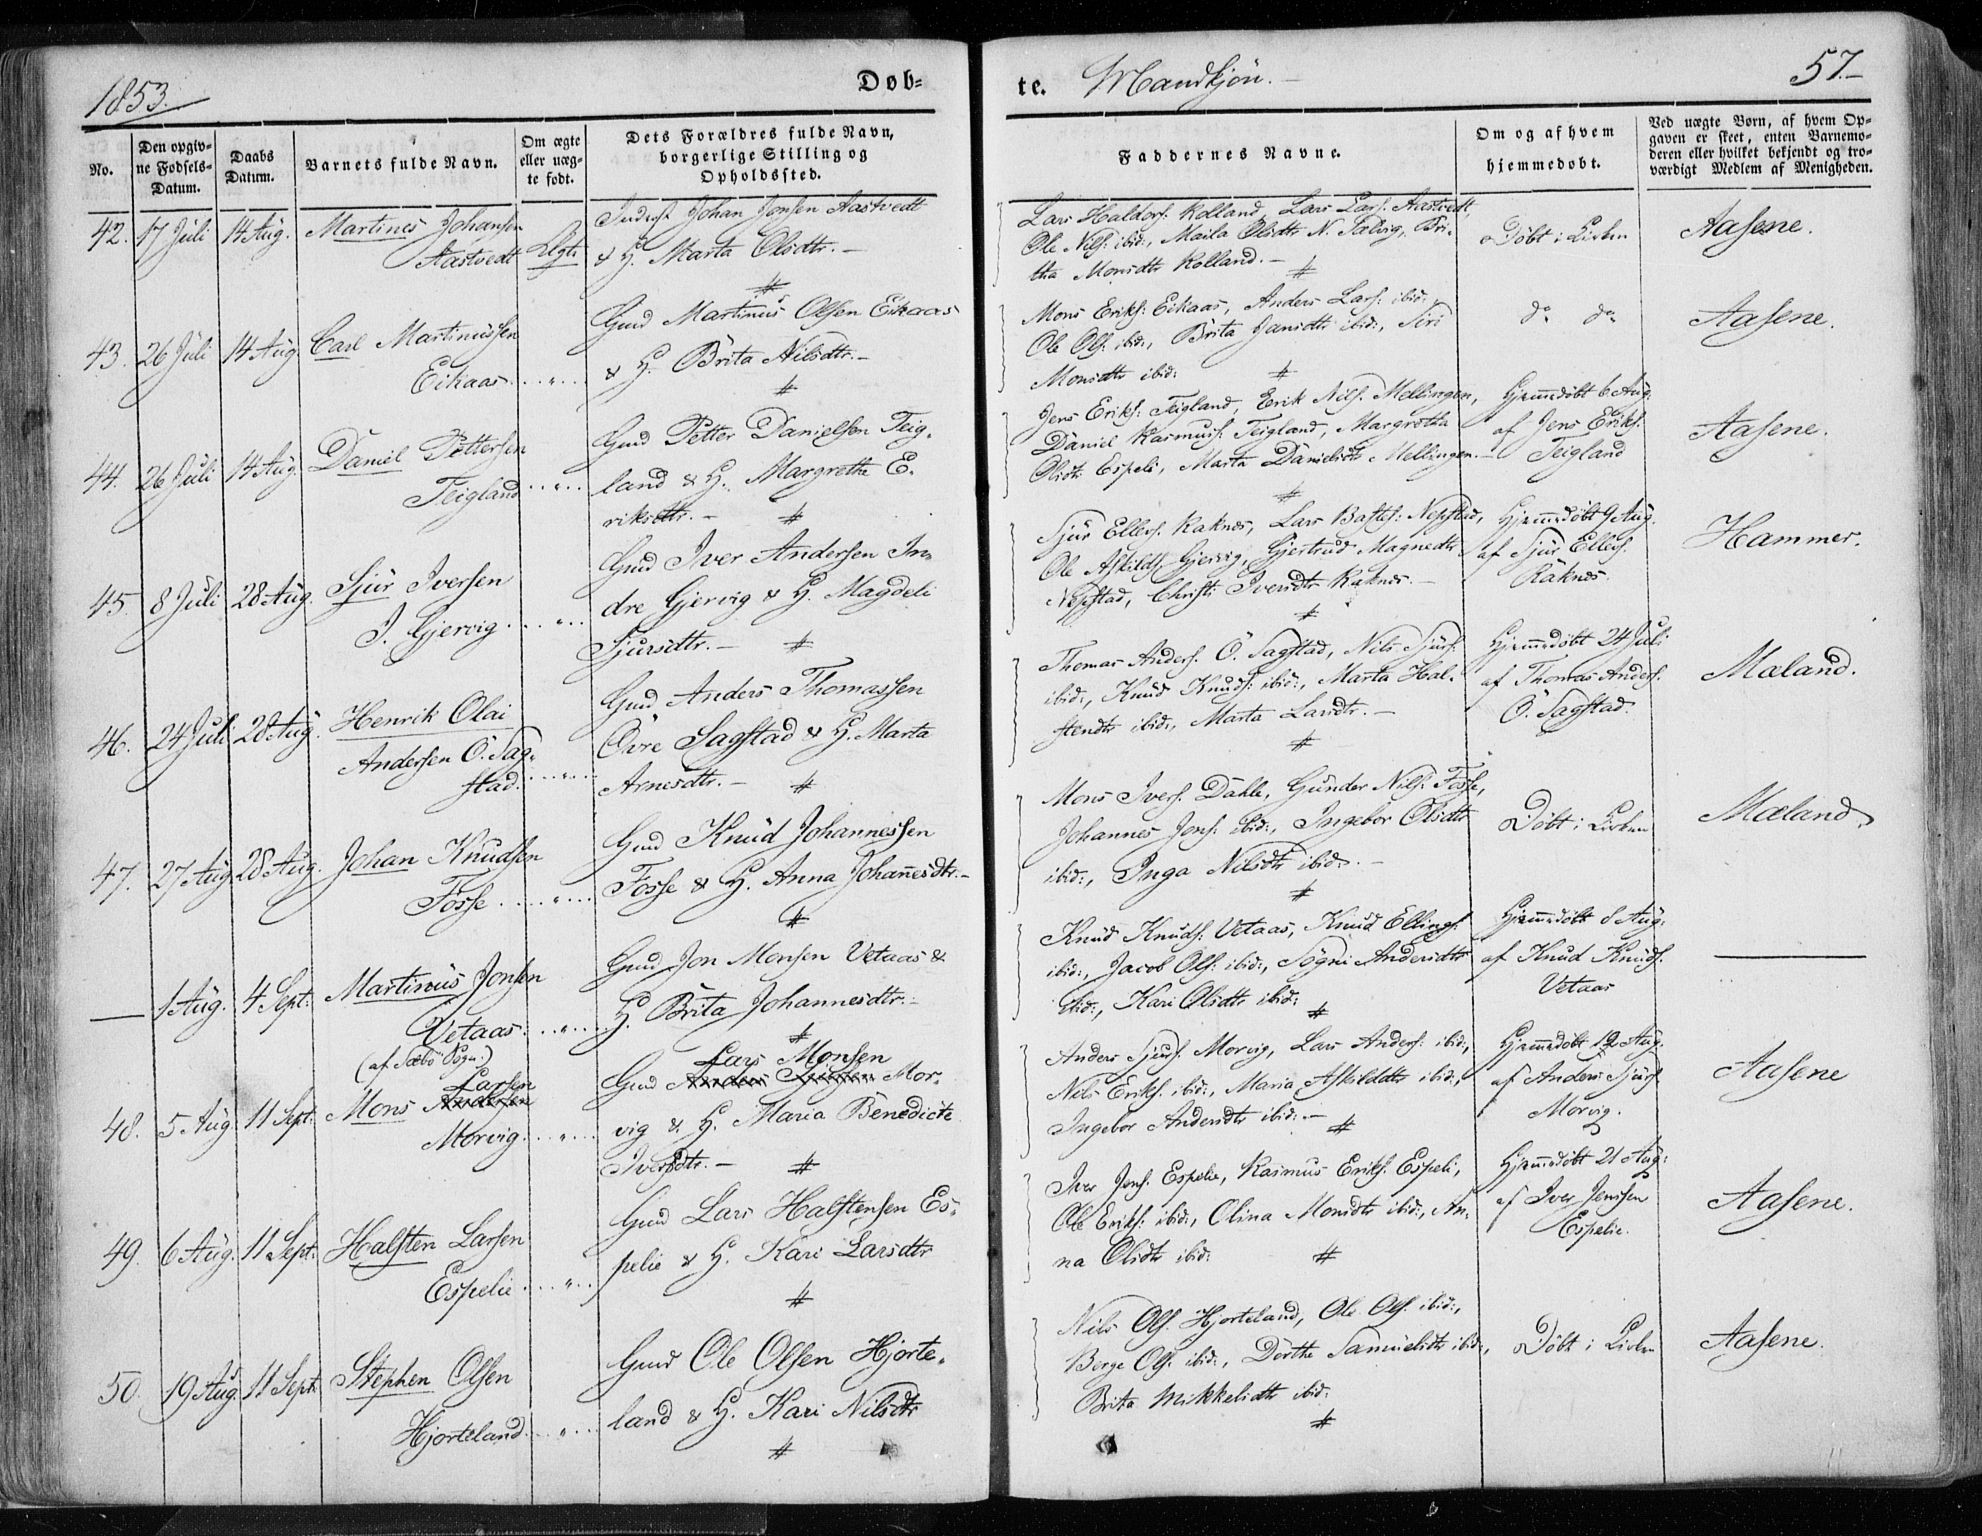 1853.
Døb=
te. Mandkjön.
57.
No.
Den opgiv-
ne Fødsels-
Datum.
Daabs
Datum.
Barnets fulde Navn.
Om ægte
eller uæg-
te født.
Dets Forældres fulde Navn,
borgerlige Stilling og
Opholdssted.
Faddernes Navne.
Om og af hvem
hjemmedøbt.
Ved uægte Børn, af hvem Op-
gaven er skeet, enten Barnemo-
deren eller hvilket bekjendt og tro-
værdigt Medlem af Menigheden.
42. 17 Juli 14 Aug. Martines Johansen
Aastvedt Ægte
Inderst Johan Jonsen Aastvedt
& H. Marta Olsdtr. -
Lars Haldors: Kolland, Lars Lars: Aastvedt,
Ole Nils: ibid:, Maila Olsdtr N. Salvig, Bri-
tha Monsdtr Kolland. -
Døbt i Kirken
Aasene.
43. 26 Juli 14 Aug. Carl Martinussen
Eikaas
Gmd Martinus Olsen Eikaas
& H. Brita Nilsdtr. -
Mons Eriks: Eikaas, Anders Lars: ibid:,
Ole Ols: ibid:, Brita Jansdtr ibid:, Siri
Monsdtr ibid:
do do
Aasene.
44. 26 Juli 14 Aug. Daniel Pettersen
Teigland
Gmd Petter Danielsen Teig-
land & H. Margrethe E-
riksdtr. -
Jens Eriks: Teigland, Erik Nils: Mellingen,
Daniel Rasmus: Teigland, Margretha
Olsdtr Espeli, Marta Danielsdtr Mellingen. -
Hjemmedøbt 6 Aug.
af Jens Eriks:
Teigland
Aasene.
45. 8 Juli 28 Aug. Sjur Iversen
I. Gjervig
Gmd Iver Andersen In-
dre Gjervig & H. Magdeli
Sjursdtr. -
Sjur Ellers: Raknes, Lars Bastes: Nepstad,
Ole Askilds: Gjervig, Gjertrud Magnedtr
Nepstad, Christi Iversdtr Raknes. -
Hjemmedøbt 9 Aug.
af Sjur Ellers:
Raknes.
Hammer.
46. 24 Juli 28 Aug. Henrik Olai
Andersen Ö. Sag-
stad.
Gmd Anders Thomassen
Övre Sagstad & H. Marta
Arnesdtr. -
Thomas Anders: Ö. Sagstad, Nils Sjurs:
ibid:, Knud Knuds: ibid:, Marta Hal-
stendtr ibid:, Marta Larsdtr. -
Hjemmedøbt 24 Juli
af Thomas Anders:
Ö. Sagstad.
Mæland.
47. 27 Aug. 28 Aug. Johan Knudsen
Fosse
Gmd Knud Johannessen
Fosse & H. Anna Johanesdtr. -
Mons Ivers: Dahle, Gunder Nils: Fosse,
Johannes Jons: ibid:, Ingebor Olsdtr
ibid:, Inga Nilsdtr ibid:. -
Døbt i Kirken
Mæland.
— 1 Aug. 4 Sept: Martinus Jonsen
Vetaas.
(af Sæbö Sogn.)
Gmd Jon Monsen Vetaas &
H. Brita Johannesdtr. -
Knud Knuds: Vetaas, Knud Ellings:
ibid:, Jacob Ols: ibid:, Sögni Andersdtr
ibid:, Kari Olsdtr ibid:
Hjemmedøbt 8 Aug.
af Knud Knuds:
Vetaas
48. 5 Aug. 11 Sept: Mons Larsen Andersen
Morvig
Lars Monsen
Gmd Anders Mor-
vig & H. Maria Benedicte
Iversdtr. -
Anders Sjurs: Morvig, Lars Anders: ibid:,
Nils Eriks: ibid:, Maria Askildsdtr ibid:,
Ingebor Andersdtr ibid:. -
Hjemmedøbt 12 Aug.
af Anders Sjurs:
Morvig.
Aasene
49. 6 Aug. 11 Sept: Halsten Larsen
Espelie
Gmd Lars Halstensen Es-
pelie & H. Kari Larsdtr
Iver Jens: Espelie, Rasmus Eriks: Espeli,
Ole Eriks: ibid:, Olina Monsdtr ibid:, An-
na Olsdtr ibid:
Hjemmedøbt 21 Aug:
af Iver Jenssen
Espelie.
Aasene.
50. 19 Aug. 11 Sept. Stephen Olsen
Hjorteland
Gmd Ole Olsen Hjorte-
land & H. Kari Nilsdtr
Nils Ols: Hjorteland, Ole Ols: ibid:,
Berge Ols: ibid:, Dorthe Samuelsdtr ibid:,
Brita Mikkelsdtr ibid:
Døbt i Kirken
Aasene.